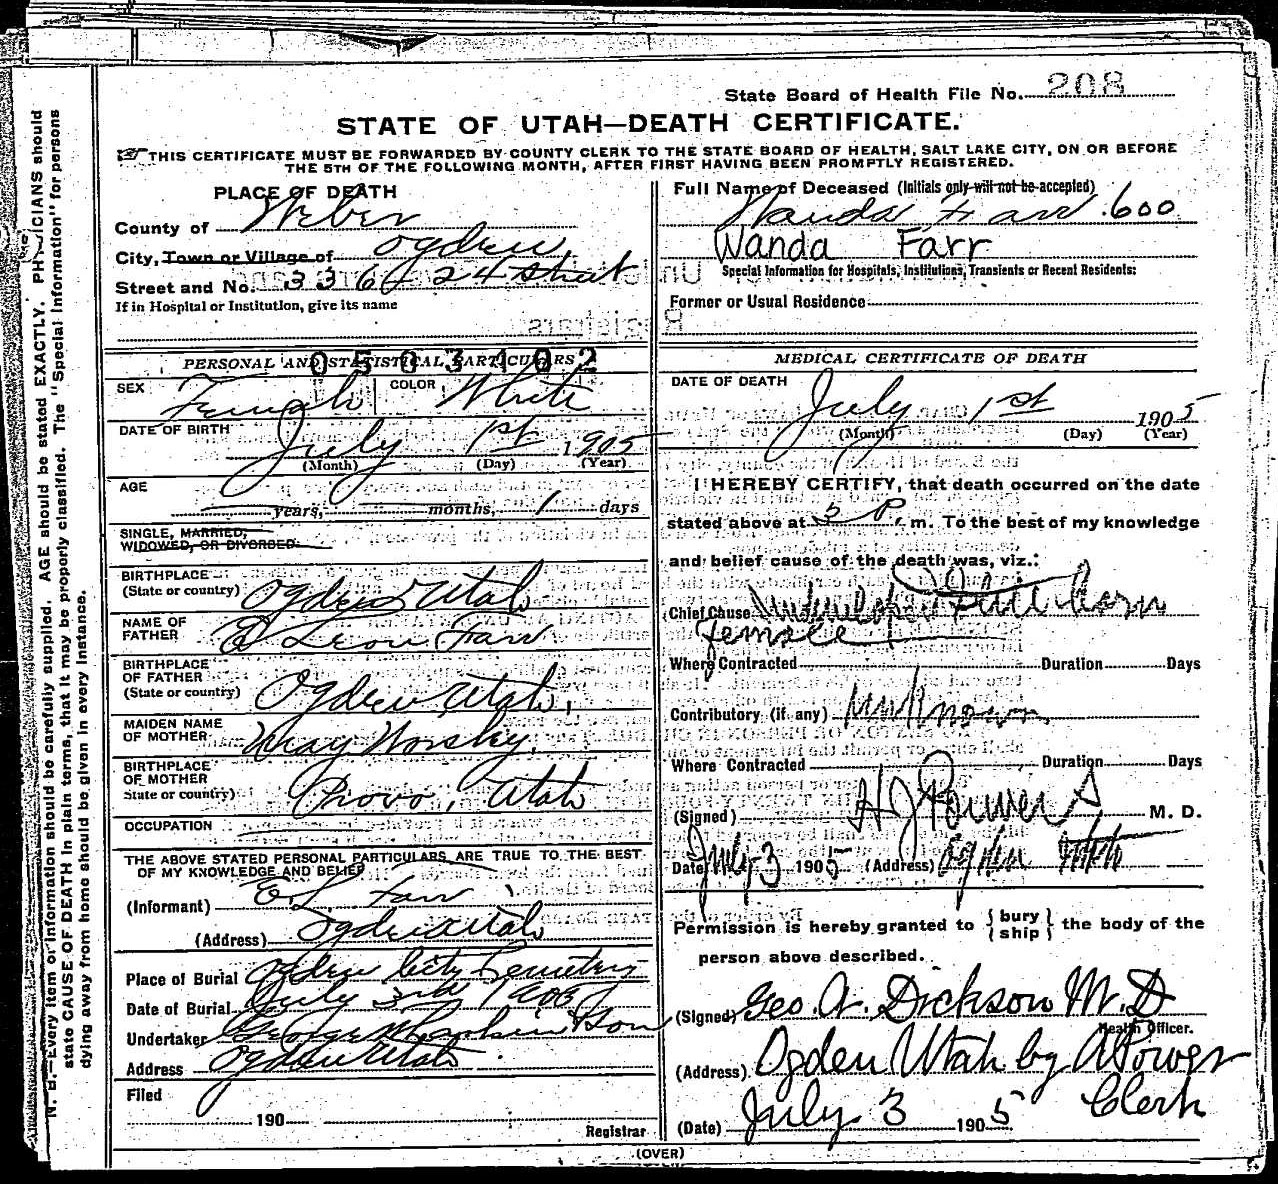 State Board of Health File No. 208
STATE OF UTAH—DEATH CERTIFICATE.
THIS CERTIFICATE MUST BE FORWARDED BY COUNTY CLERK TO THE STATE BOARD OF HEALTH, SALT LAKE CITY, ON OR BEFORE
THE 5TH OF THE FOLLOWING MONTH, AFTER FIRST HAVING BEEN PROMPTLY REGISTERED.
N. B.—Every item of information should be carefully supplied. AGE should be stated EXACTLY. PHYSICIANS should
state CAUSE OF DEATH in plain terms, that it may be properly classified. The "Special Information" for persons
dying away from home should be given in every instance.
PLACE OF DEATH
County of Weber
City, Town or Village of Ogden
Street and No. 336 24 street
If in Hospital or Institution, give its name
PERSONAL AND STATISTICAL PARTICULARS
0503102
SEX Female COLOR White
DATE OF BIRTH July 1st 1905
(Month) (Day) (Year)
AGE
years, months, 1 days
SINGLE, MARRIED,
WIDOWED, OR DIVORCED.
BIRTHPLACE
(State or country) Ogden Utah
NAME OF
FATHER E Leon Farr
BIRTHPLACE
OF FATHER
(State or country) Ogden Utah,
MAIDEN NAME
OF MOTHER May Worsley.
BIRTHPLACE
OF MOTHER
State or country) Provo, Utah
OCCUPATION
THE ABOVE STATED PERSONAL PARTICULARS ARE TRUE TO THE BEST
OF MY KNOWLEDGE AND BELIEF
(Informant) E. L. Farr
(Address) Ogden Utah
Place of Burial Ogden City Cemetery
Date of Burial July 3rd 1905
Undertaker George Larkin & Son
Address Ogden Utah
Filed
190
Registrar
Full Name of Deceased (Initials only will not be accepted)
Wanda Farr .600
Wanda Farr
Special Information for Hospitals, Institutions, Transients or Recent Residents:
Former or Usual Residence
MEDICAL CERTIFICATE OF DEATH
DATE OF DEATH
July 1st 1905
(Month) (Day) (Year)
I HEREBY CERTIFY, that death occurred on the date
stated above at 5 P. m. To the best of my knowledge
and belief cause of the death was, viz.:
Chief Cause Still born
female
Where Contracted Duration Days
Contributory (if any) Unknown
Where Contracted Duration Days
(Signed) H J Powers M. D.
Date July 3 1905 (Address) Ogden Utah
Permission is hereby granted to { bury ship } the body of the
person above described.
(Signed) Geo. A. Dickson M. D
Health Officer.
(Address) Ogden Utah by A Power
Clerk
(Date) July 3 1905
(OVER)